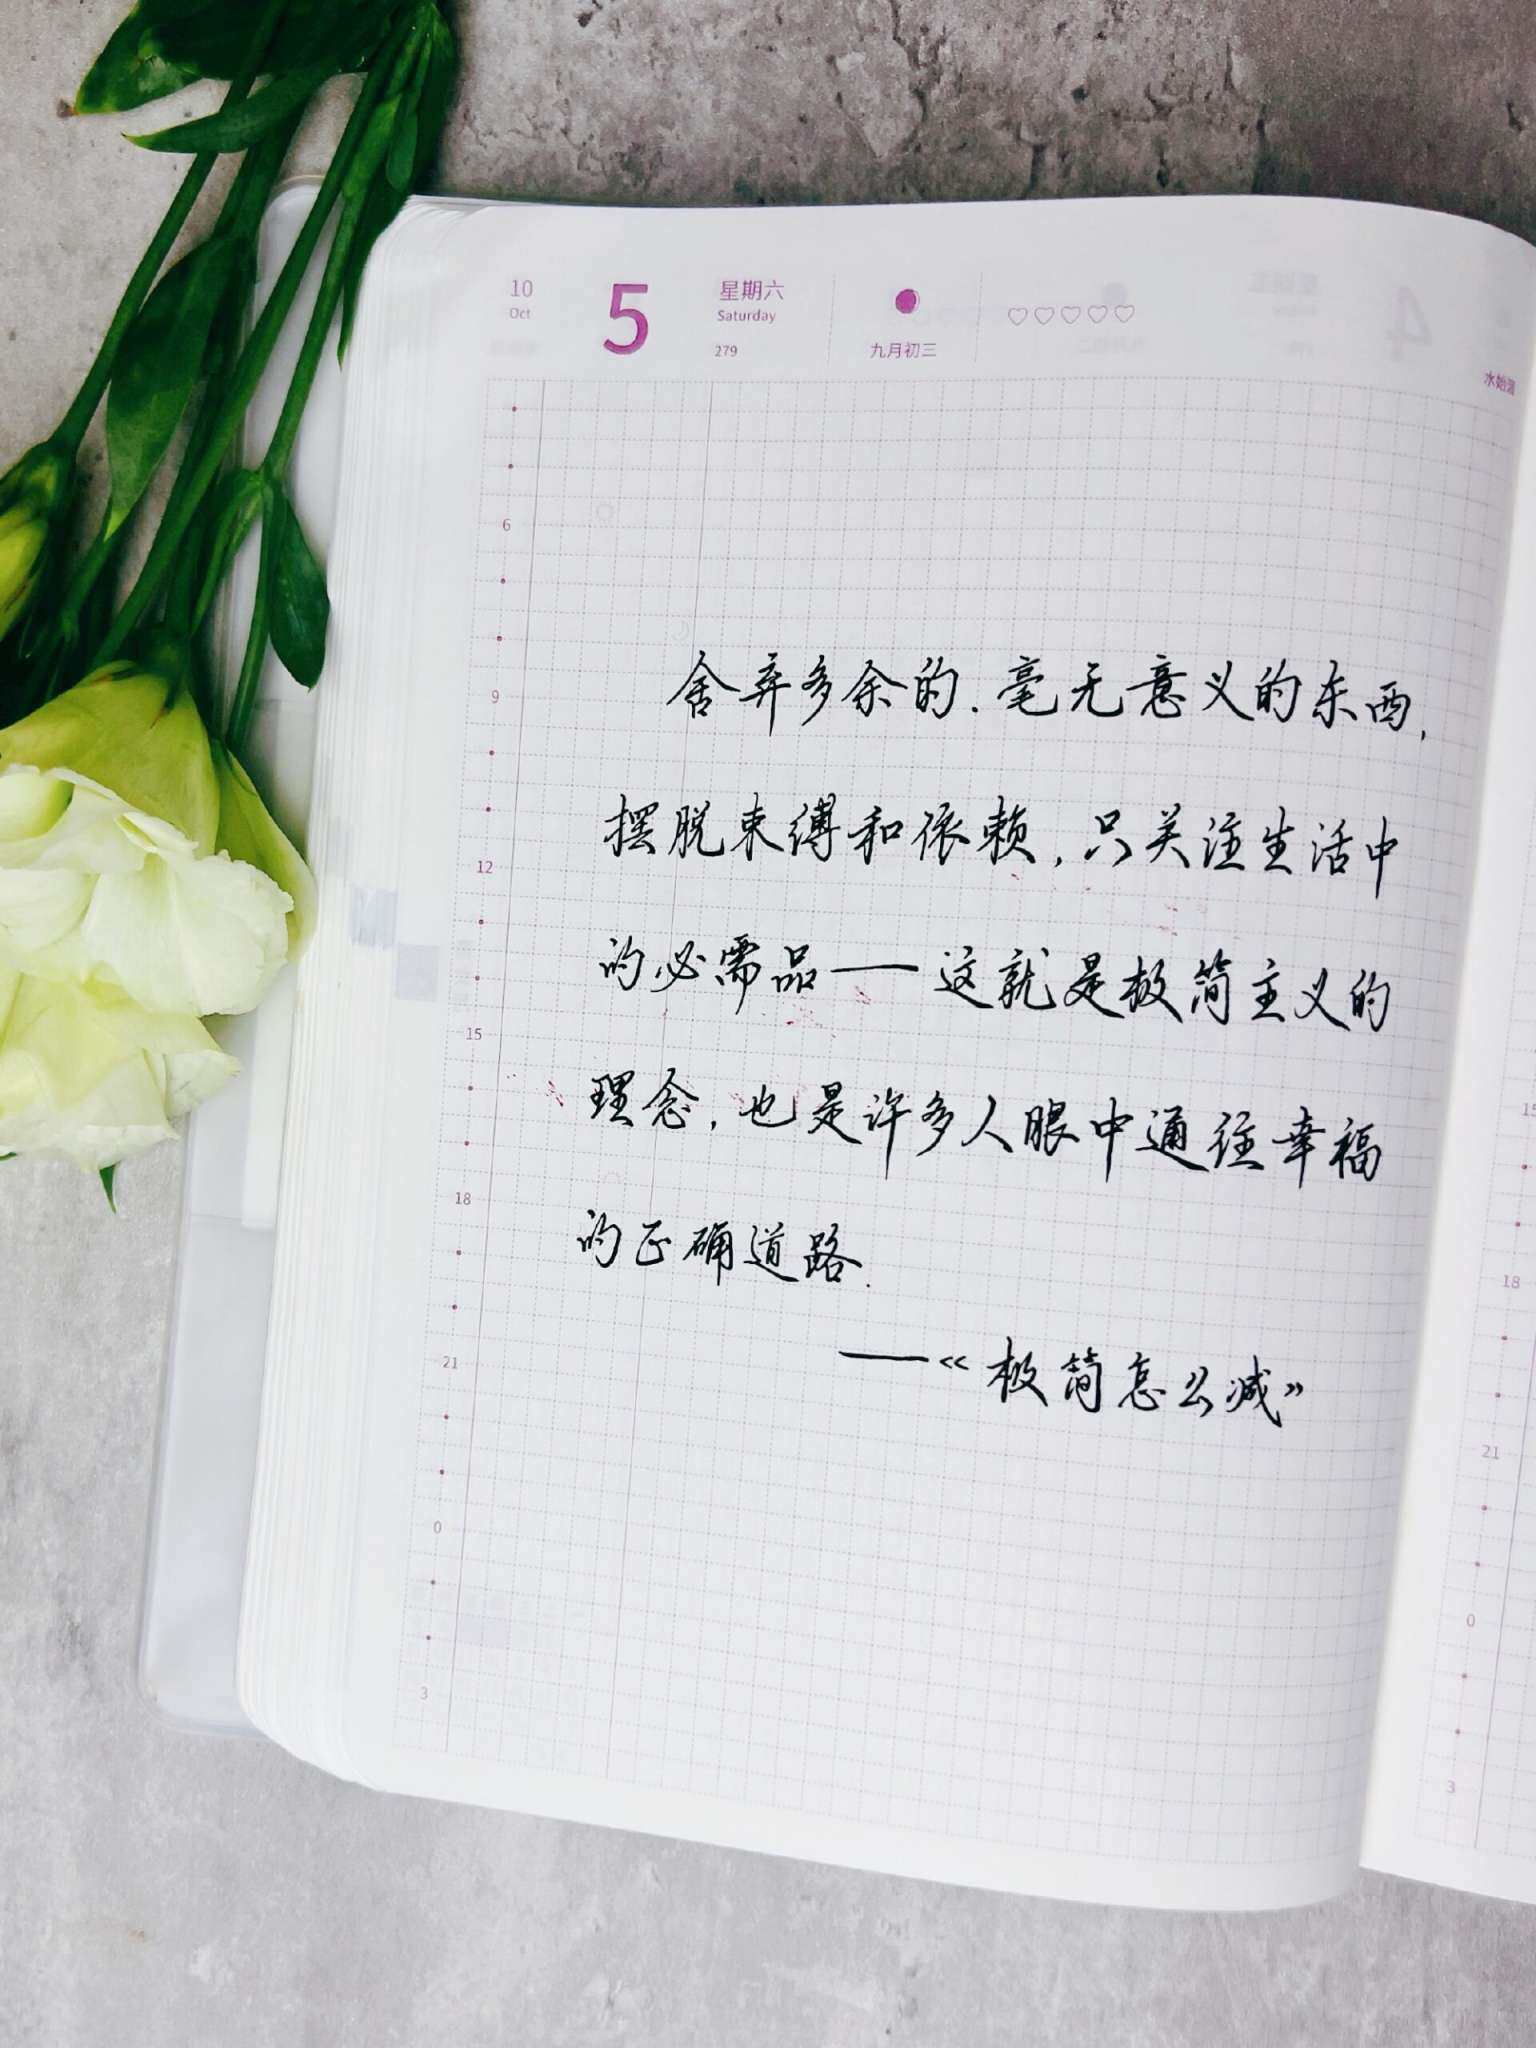 10
Oct
5
星期六
Saturday
279
九月初三
水始涸
舍弃多余的.毫无意义的东西,
摆脱束缚和依赖,只关注生活中
的必需品——这就是极简主义的
理念,也是许多人眼中通往幸福
的正确道路.
——《极简怎么减》
6
9
12
15
18
21
0
3
15
18
21
0
3